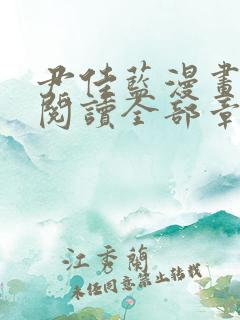 尹佳蓝漫畫
閱讀全部章
江秀蘭
未经同意禁止轉載